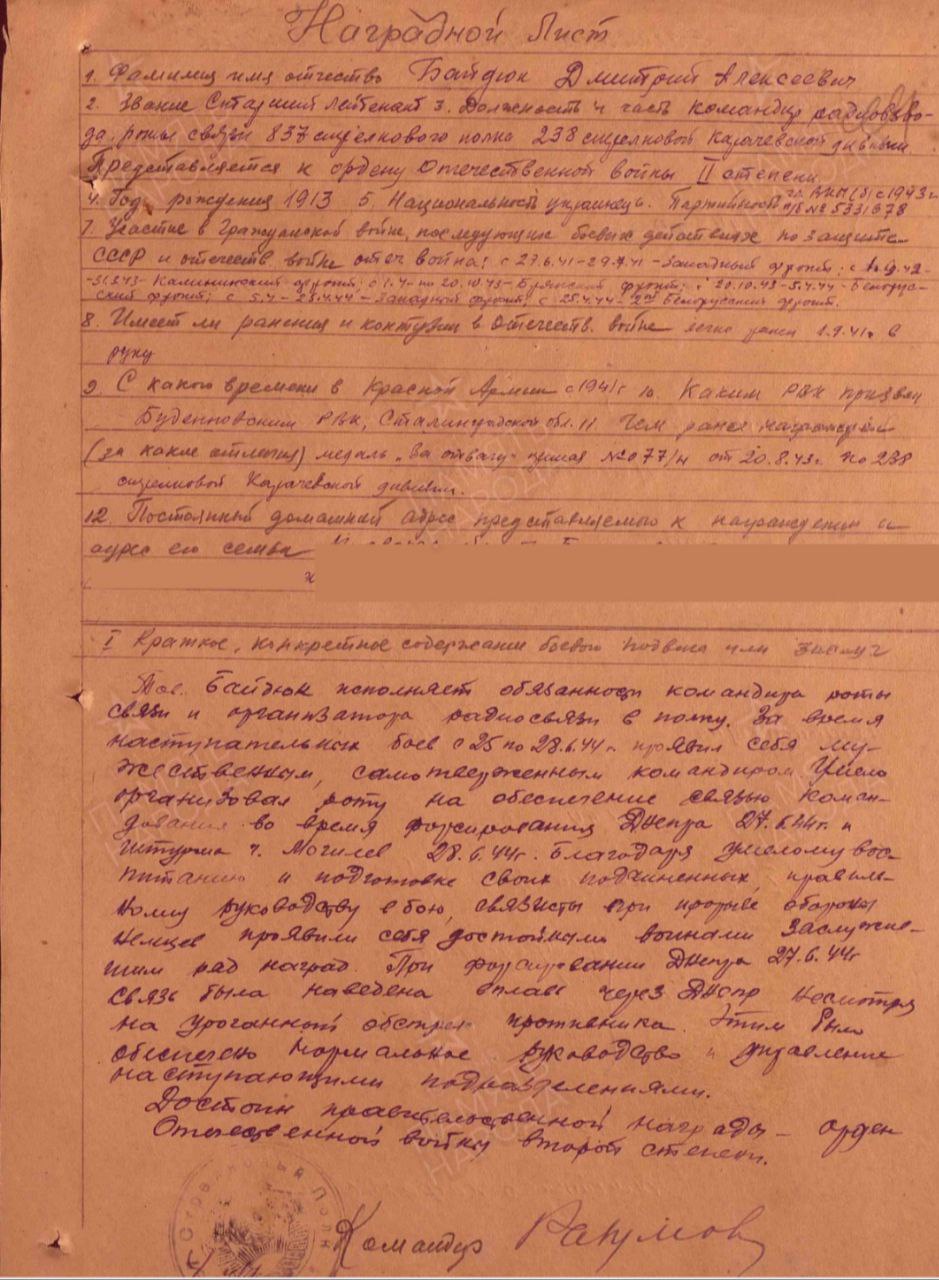 Наградной Лист
1. Фамилия имя отчество Байдюк Дмитрий Алексеевич
2. Звание Старший лейтенант 3. Должность и часть командир радиовзво-
да роты связи 837 стрелкового полка 238 стрелковой Карачевской дивизии
Представляется к ордену Отечественной войны II степени
4. Год рождения 1913 5. Национальность украинец. Партийность чл. ВКП(б) с 1943 г.
п/б № 5331678
7. Участие в гражданской войне, последующих боевых действиях по защите
СССР и отечеств войне отеч война: с 27.6.41-29.7.41 - Западный фронт; с
-31.3.43- Калининский фронт; с 1.4- по 20.10.43- Брянский фронт; с 20.10.43-5.4.44- Белорус-
ский фронт; с 5.4-25.4.44- Западный фронт; с 25.4.44- 2ой Белорусский фронт.
8. Имеет ли ранения и контузии в отечеств. войне легко ранен 1.9.41г. в
руку
9. С какого времени в Красной Армии с 1941г 10. Каким РВК призван
Буденновским РВК, Сталинградской обл. 11. Чем ранее награжден
(за какие отличия) медаль "За отвагу" приказ №077/н от 20.8.43г. по 238
стрелковой Карачевской дивизии.
12. Постоянный домашний адрес представляемого к награждению и
адрес его семьи
I Краткое, конкретное содержание боевого подвига или заслуг
Тов. Байдюк исполняет обязанности командира роты
связи и организатора радиосвязи в полку. За время
наступательных боев с 25 по 28.6.44 г. проявил себя му-
жественным, самоотверженным командиром. Умело
организовал роту на обеспечение связью коман-
дования во время форсирования Днепра 27.6.44г. и
штурма г. Могилев 28.6.44г. Благодаря умелому вос-
питанию и подготовке своих подчиненных, правиль-
ному руководству в бою, связисты при прорыве обороны
немцев проявили себя достойными воинами заслужив-
шим ряд наград. При форсировании Днепра 27.6.44г
связь была наведена вплавь через Днепр несмотря
на ураганный обстрел противника. Этим было
обеспечено нормальное руководство и управление
наступающими подразделениями.
Достоин правительственной награды - орден
Отечественной войны второй степени.
Стрелковый Полк
Командир Разумов